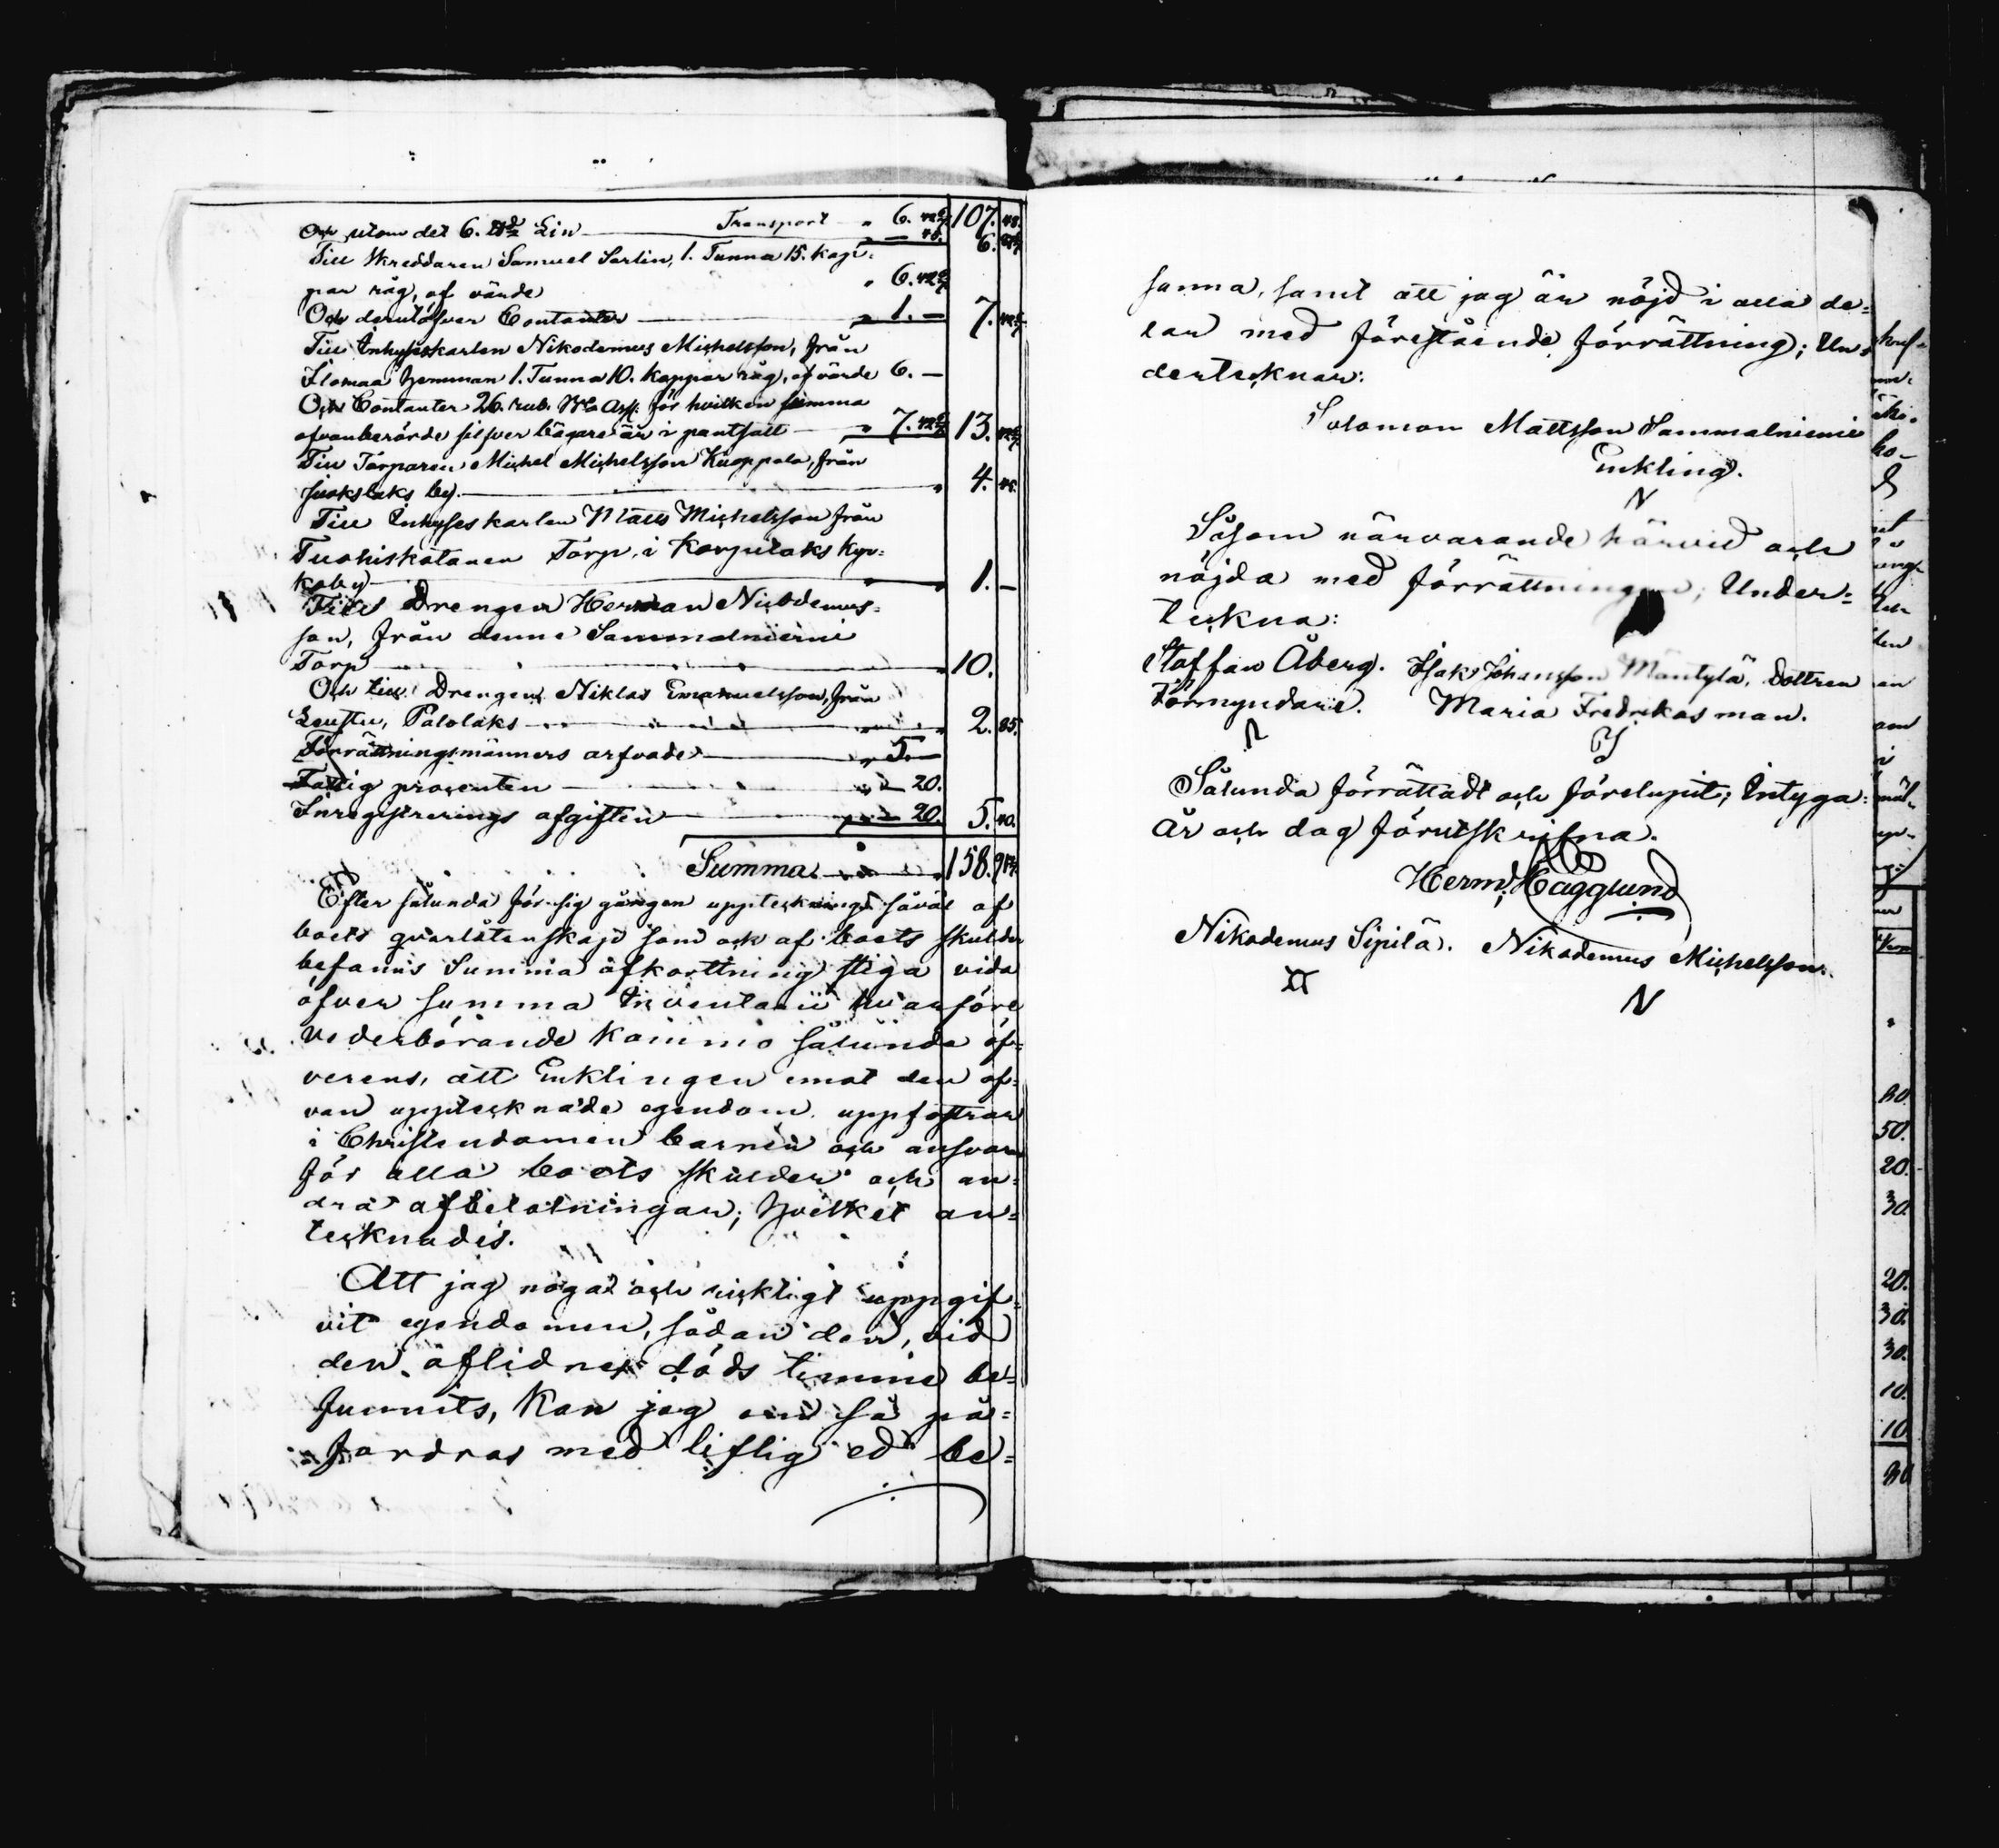 Transport " 6. 42 6/7 107. 48.
Och utom det 6. ℔ Lin — 48. 6.
Till Skreddaren Samuel Sarlin, 1. Tunna 15. kap=
par råg, af värde " 6. 42 6/7
Och derutöfver Contanter " 1. — 7. 42 6/7
Till Inhyseskarlen Nikodemus Michelsson, från
Ilomaa hemman 1. Tunna 10. kappar råg, af värde 6. —
Och Contanter 26. rub. B:co Ass: för hvilken summa
ofvanberörde silfver bägare är i pantsatt " 7. 42 6/7 13. 42 6/7
Till Torparen Michel Michelsson Kuoppala, från
Suokslaks by. " 4.
Till Inhyses karlen Matts Michelsson från
Tuohiskotanen Torp, i Korpilaks Kyr=
koby " 1. —
Till Drengen Herman Nicodemus=
son, från denne Sammalniemi
Torp " 10.
Och till Drengen Niklas Emanuelsson, från
Leustu, Palolaks " 2. 85.
Förrättningsmänners arfvode " 5. —
Fattig procenten " — 20.
Inregistrerings afgiften " — 20. 5. 40.
Summa " 158.
Efter sålunda för sig gången uppteckning såväl af
boets qvarlåtenskap som ock af boets skulder
befanns Summa afkorttning stiga vida
öfver summa Inventarii hvarföre
vederbörande kommo sålunda öf=
verens, att Enklingen emot den of=
van upptecknade egendom, uppfostrar
i Christendomen barnen och ansvarar
för alla boets skulder och an=
dra afbetalningar; hvilket an=
tecknades.
Att jag noga och ricktigt uppgif=
vit egendomen, sådan den, vid
den aflidnes döds timme be=
funnits, kan jag om så på=
fordras med liflig ed be=
sanna, samt att jag är nöjd i alla de=
lar med förestående förrättning; Un=
dertecknar:
Solomon Mattsson Sammalniemi
Enkling.
N
Såsom närvarande härvid och
nöjda med förrättningen; Under=
teckna:
Staffan Åberg. Isak Johansson Mäntylä, Dottren
Förmyndare. Maria Fredrikas man.
Sålunda förrättadt och förelupit; Intyga:
År och dag förutskrifna.
Herm: Hägglund
Nikodemus Sipilä. Nikodemus Michelsson.
N
50.
20.
30.
20.
30.
30.
10.
10.